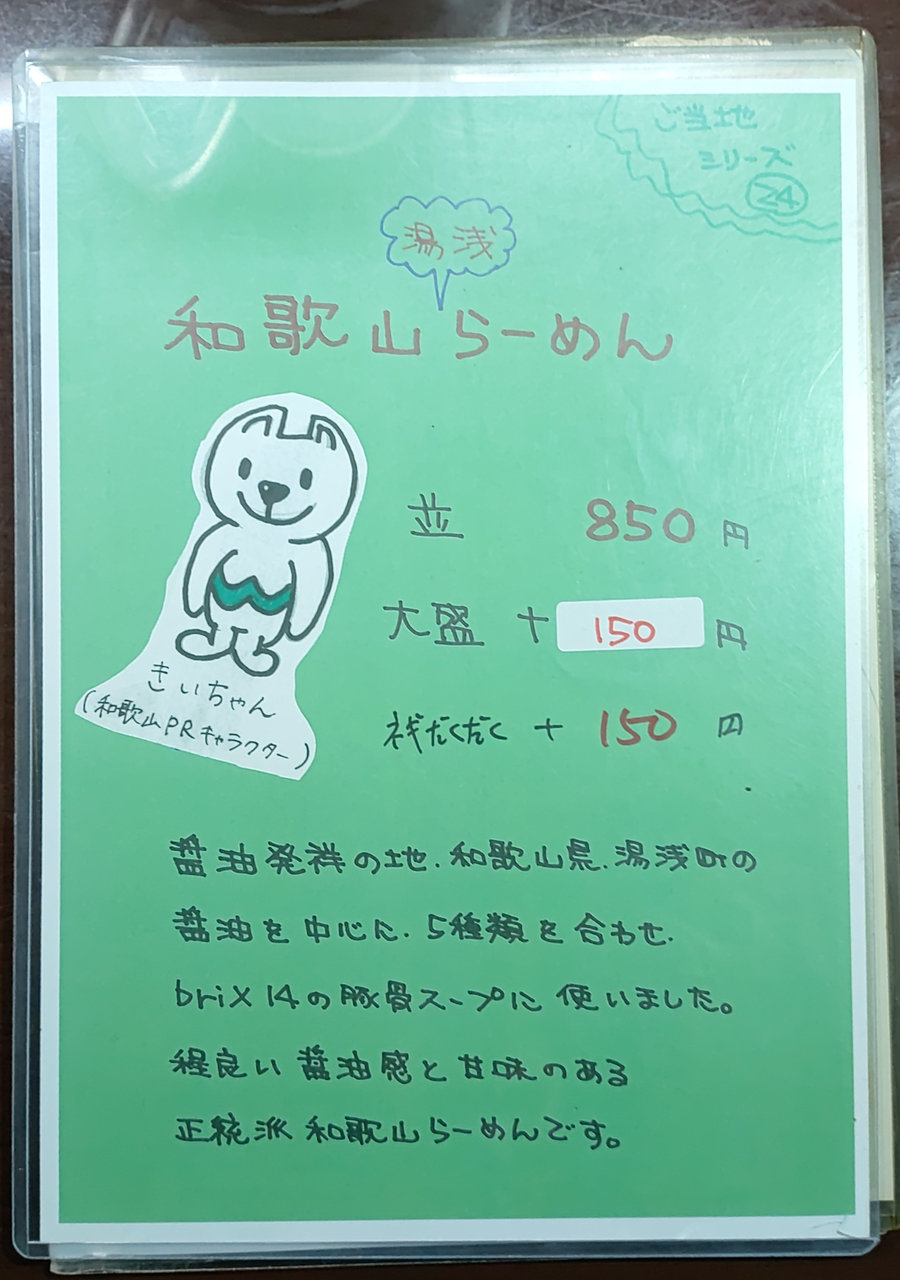 ご当地
シリーズ
24
湯浅
和歌山らーめん
並 850円
大盛 + 150円
だくだく + 150円
きいちゃん
(和歌山PRキャラクター)
醤油発祥の地、和歌山県、湯浅町の
醤油を中心に、5種類を合わせ、
brix14の豚骨スープに使いました。
程良い醤油感と甘味のある
正統派和歌山らーめんです。